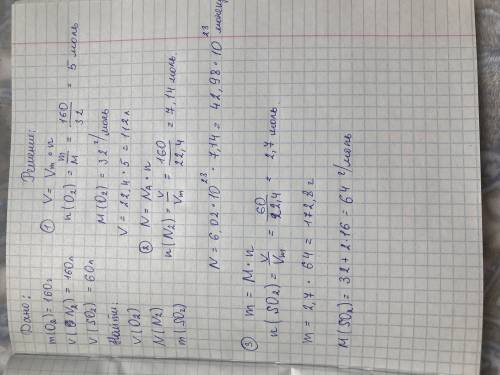 Дано:
m(O₂)=160г
V(N₂)=160л
V(SO₂)=60л
Найти:
V(O₂)
N(N₂)
m(SO₂)
Решение:
① V = Vm • n
n(O₂) = m/M = 160/32 = 5 моль
M(O₂) = 32 г/моль
V = 22,4 • 5 = 112л
② N = NA • n
n(N₂) = V/Vm = 160/22,4 = 7,14 моль.
N = 6,02 • 10²³ • 7,14 = 42,98 • 10²³ молекул
③ m = M • n
n(SO₂) = V/Vm = 60/22,4 = 2,7 моль
m = 2,7 • 64 = 172,8 г
M(SO₂) = 32 + 2 • 16 = 64 г/моль